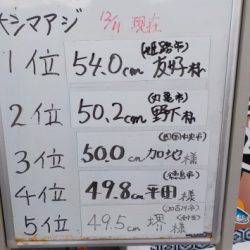 大シマアジ 12/11 現在
1位 54.0cm (姫路市) 友好様
2位 50.2cm (丸亀市) 野下様
3位 50.0cm (四国中央市) 加地様
4位 49.8cm (徳島市) 平田様
5位 49.5cm (加古川市) 堺様